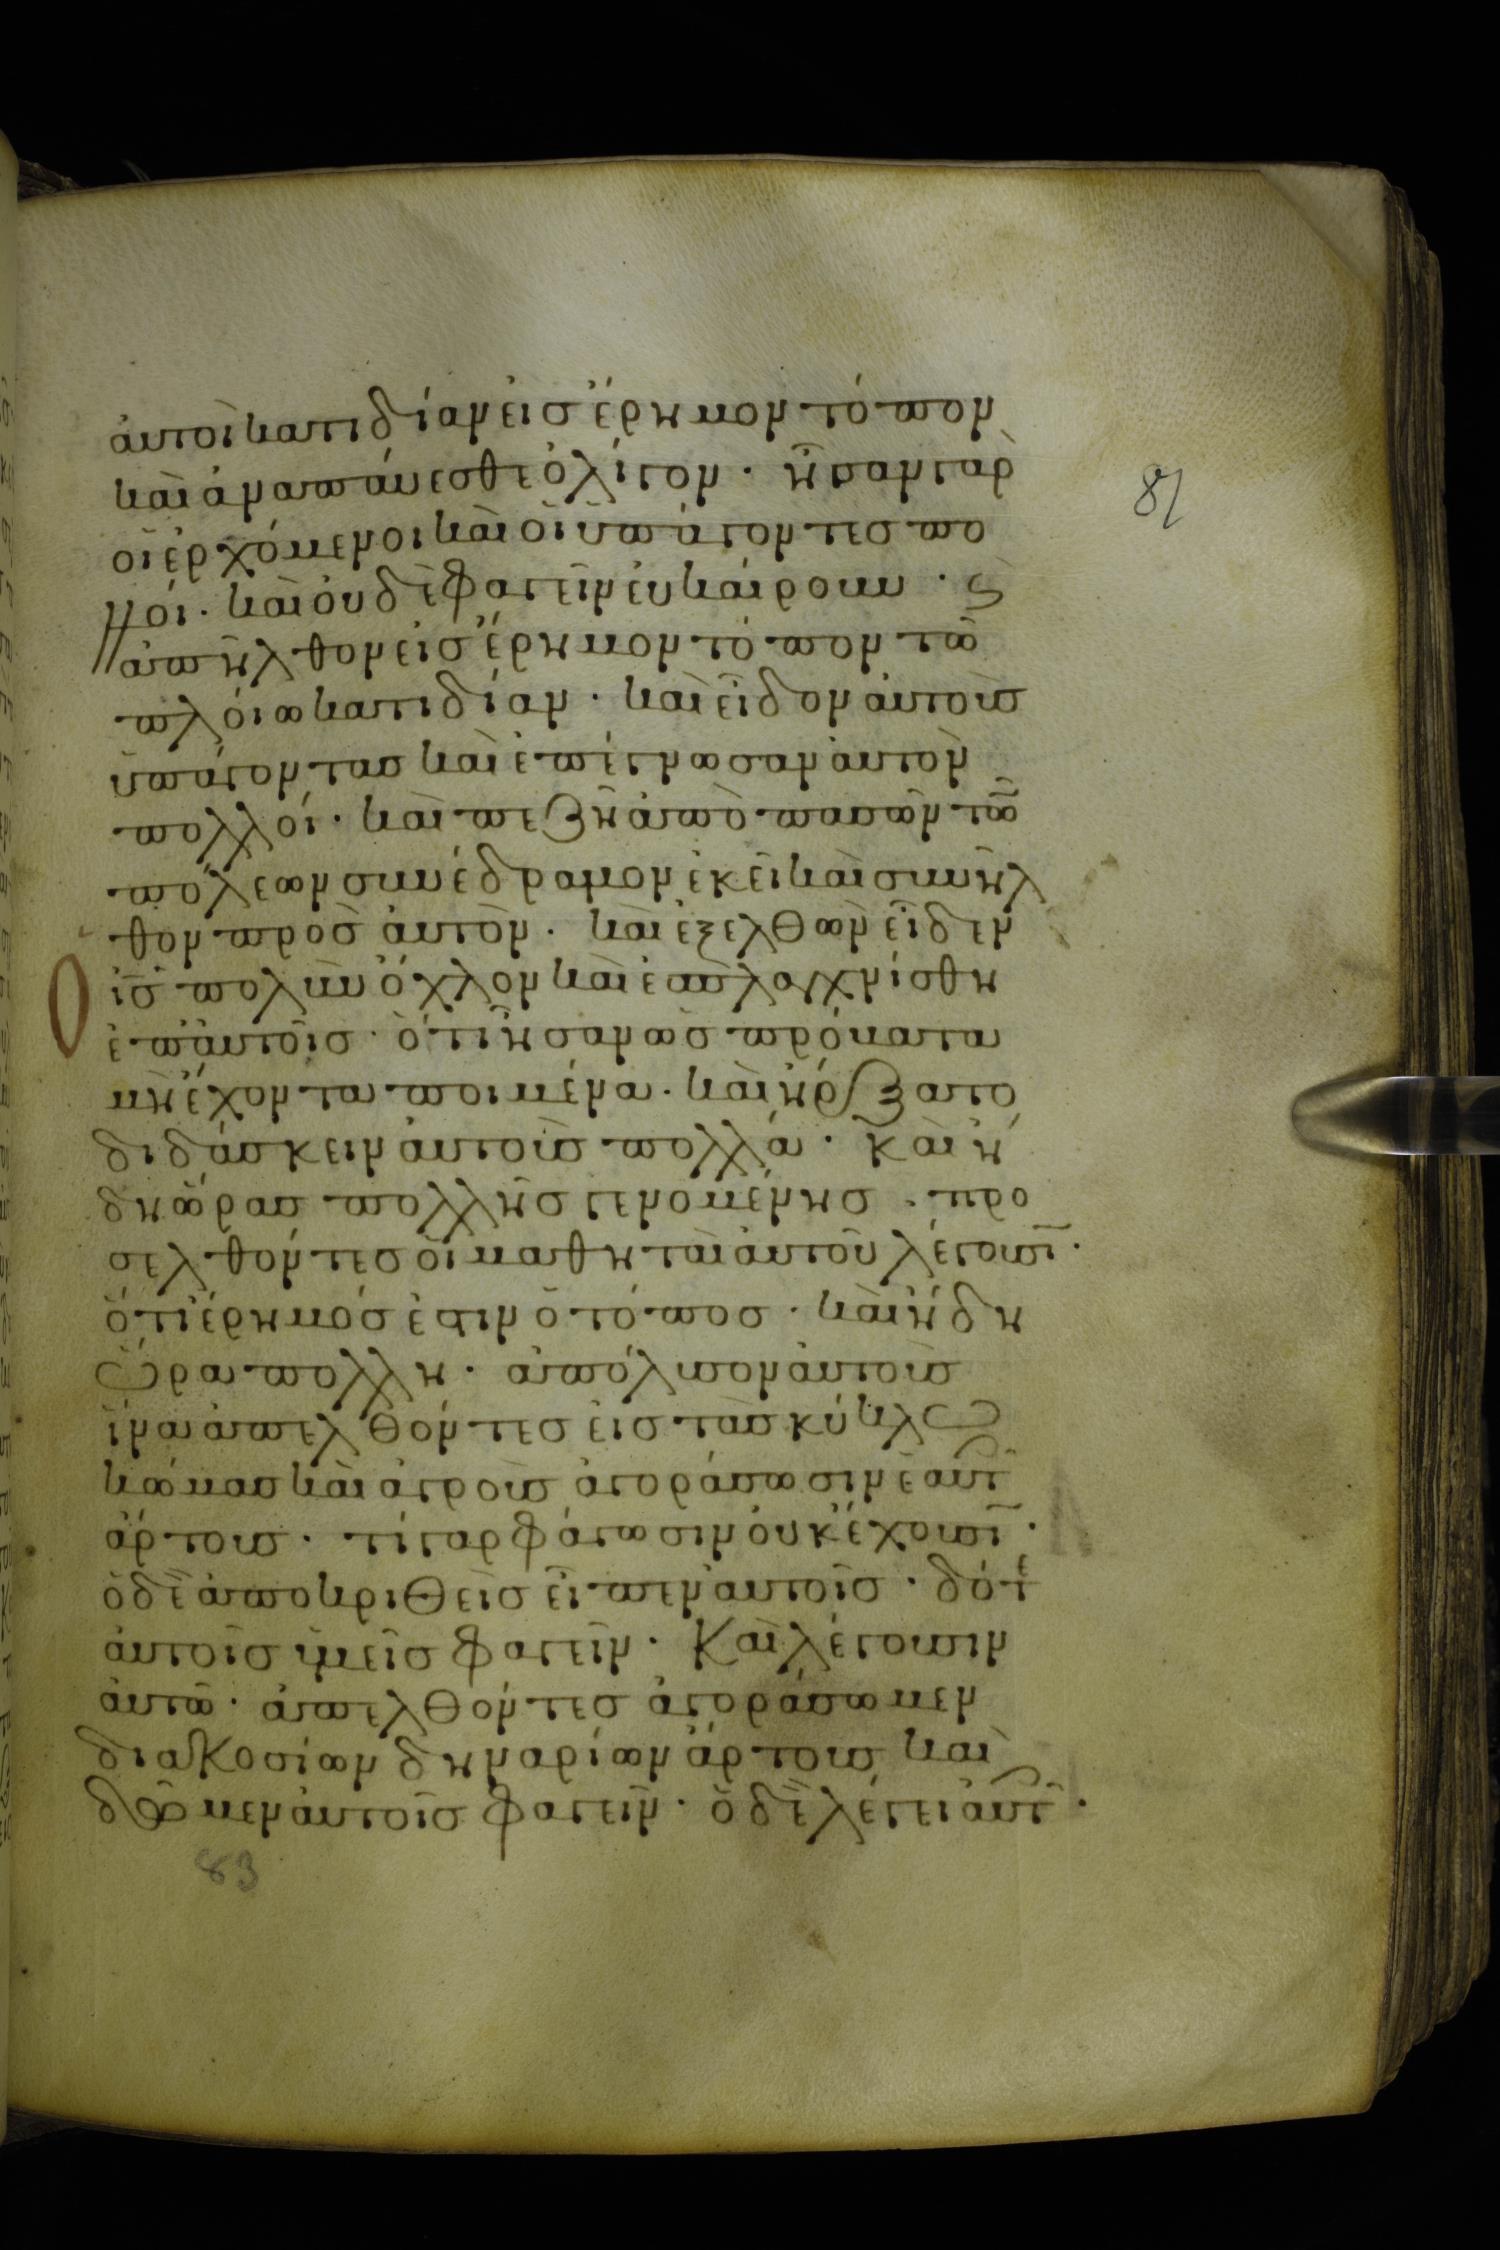 ἀυτοὶ κατιδίαν εἰς ἔρημον τόπον
καὶ ἀναπαύεσθε ὀλίγον· ἦσαν γὰρ
οἱ ἐρχόμενοι καὶ οἱ ὑπάγοντες πο
λλοί· καὶ ὀυδὲ φαγεῖν ἐυκαίρουν· ϛ
ἀπῆλθον εἰς ἔρημον τόπον τῶ
πλοίω κατιδίαν· καὶ εἶδον ἀυτοὺς
ὑπάγοντας καὶ ἐπέγνωσαν ἀυτὸν
πολλοί· καὶ πεζῆ ἀπὸ πασῶν τῶ̅
πόλεων συνέδραμον ἐκεῖ καὶ συνῆλ
θον πρὸς ἀυτόν· καὶ ἐξελθὼν εἶδεν
ὁ ι̅ς̅ πολὺν ὄχλον καὶ ἐσπλαγχνίσθη
ἐπ ἀυτοῖς· ὅτι ἦσαν ὡς πρόβατα
μὴ ἔχοντα ποιμένα· καὶ ἤρξατο
διδάσκειν ἀυτοὺς πολλά· Καὶ ἤ
δη ὥρας πολλῆς γενομένης· προ
σελθόντες οἱ μαθηταὶ ἀυτοῦ λέγουσϊ̅·
ὅτι ἔρημός ἐστιν ὁ τόπος· καὶ ἤδη
ὥρα πολλή· ἀπόλυσον ἀυτοὺς
ἵνα ἀπελθόντες εἰς τὰς κύκλω
κώμας καὶ ἀγροὺς ἀγοράσωσιν ἑαυτ
ἄρτους· τί γὰρ φάγωσιν ὀυκ ἔχουσϊ̅·
ὁ δὲ ἀποκριθεὶς εἶπεν ἀυτοῖς· δότε
ἀυτοῖς ὑμεῖς φαγεῖν· Καὶ λέγουσιν
ἀυτῶ· ἀπελθόντες ἀγοράσωμεν
διακοσίων δηναρίων ἄρτους καὶ
δῶμεν ἀυτοῖς φαγεῖν· ὁ δὲ λέγει ἀυτ·
81
83